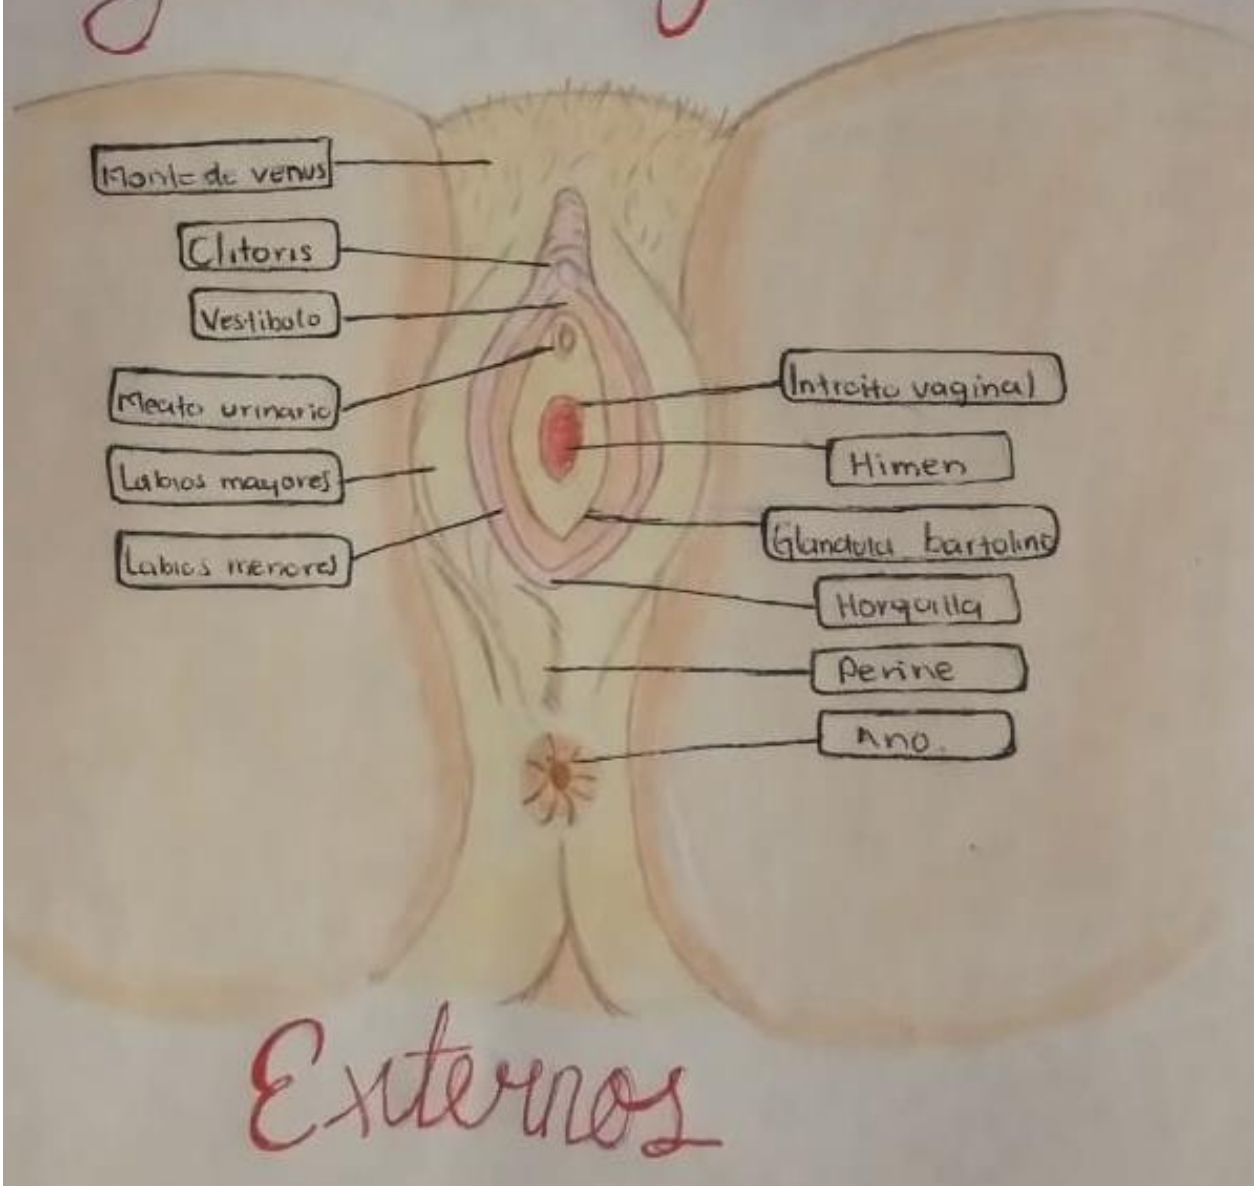 Monte de venus
Clitoris
Vestibolo
Meato urinario
Labios mayores
Labios menores
Introito vaginal
Himen
Glandula bartolino
Horquilla
Perine
Ano.
Externos